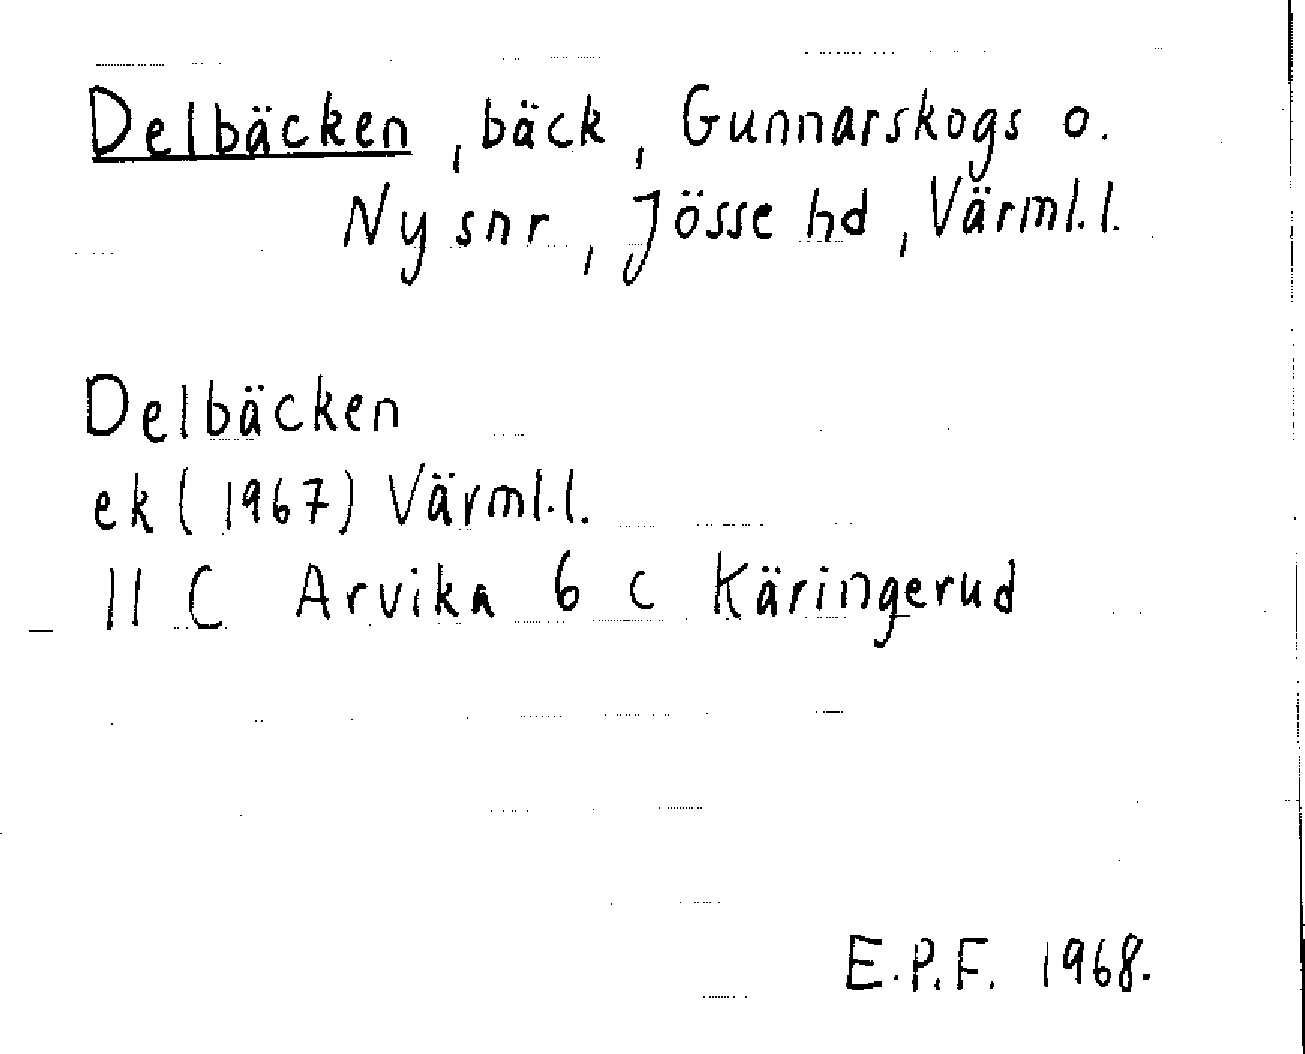 Delbäcken, bäck, Gunnarskogs o.
Ny snr, Jösse hd, Värml.l.
Delbäcken
ek (1967) Värml.l.
11 C Arvika 6 c Käringerud
E.P.F. 1968.